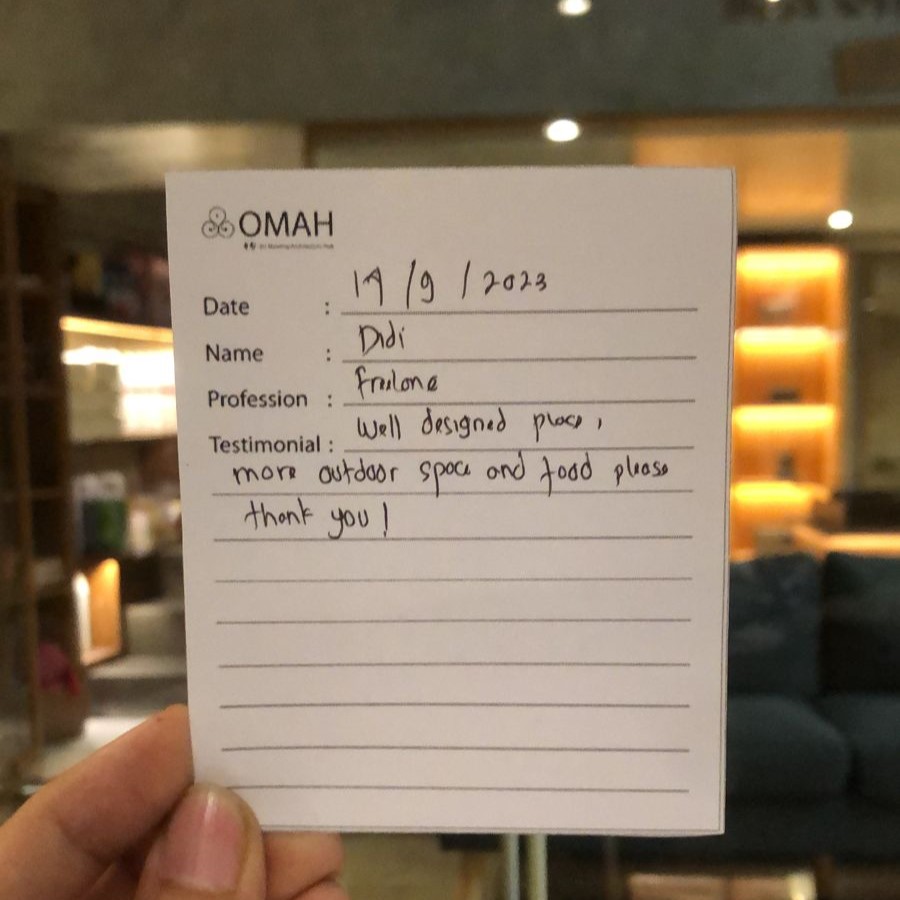 OMAH
Date : 19/9/2023
Name : Didi
Profession : Freelance
Testimonial : Well designed place,
more outdoor space and food please
thank you!